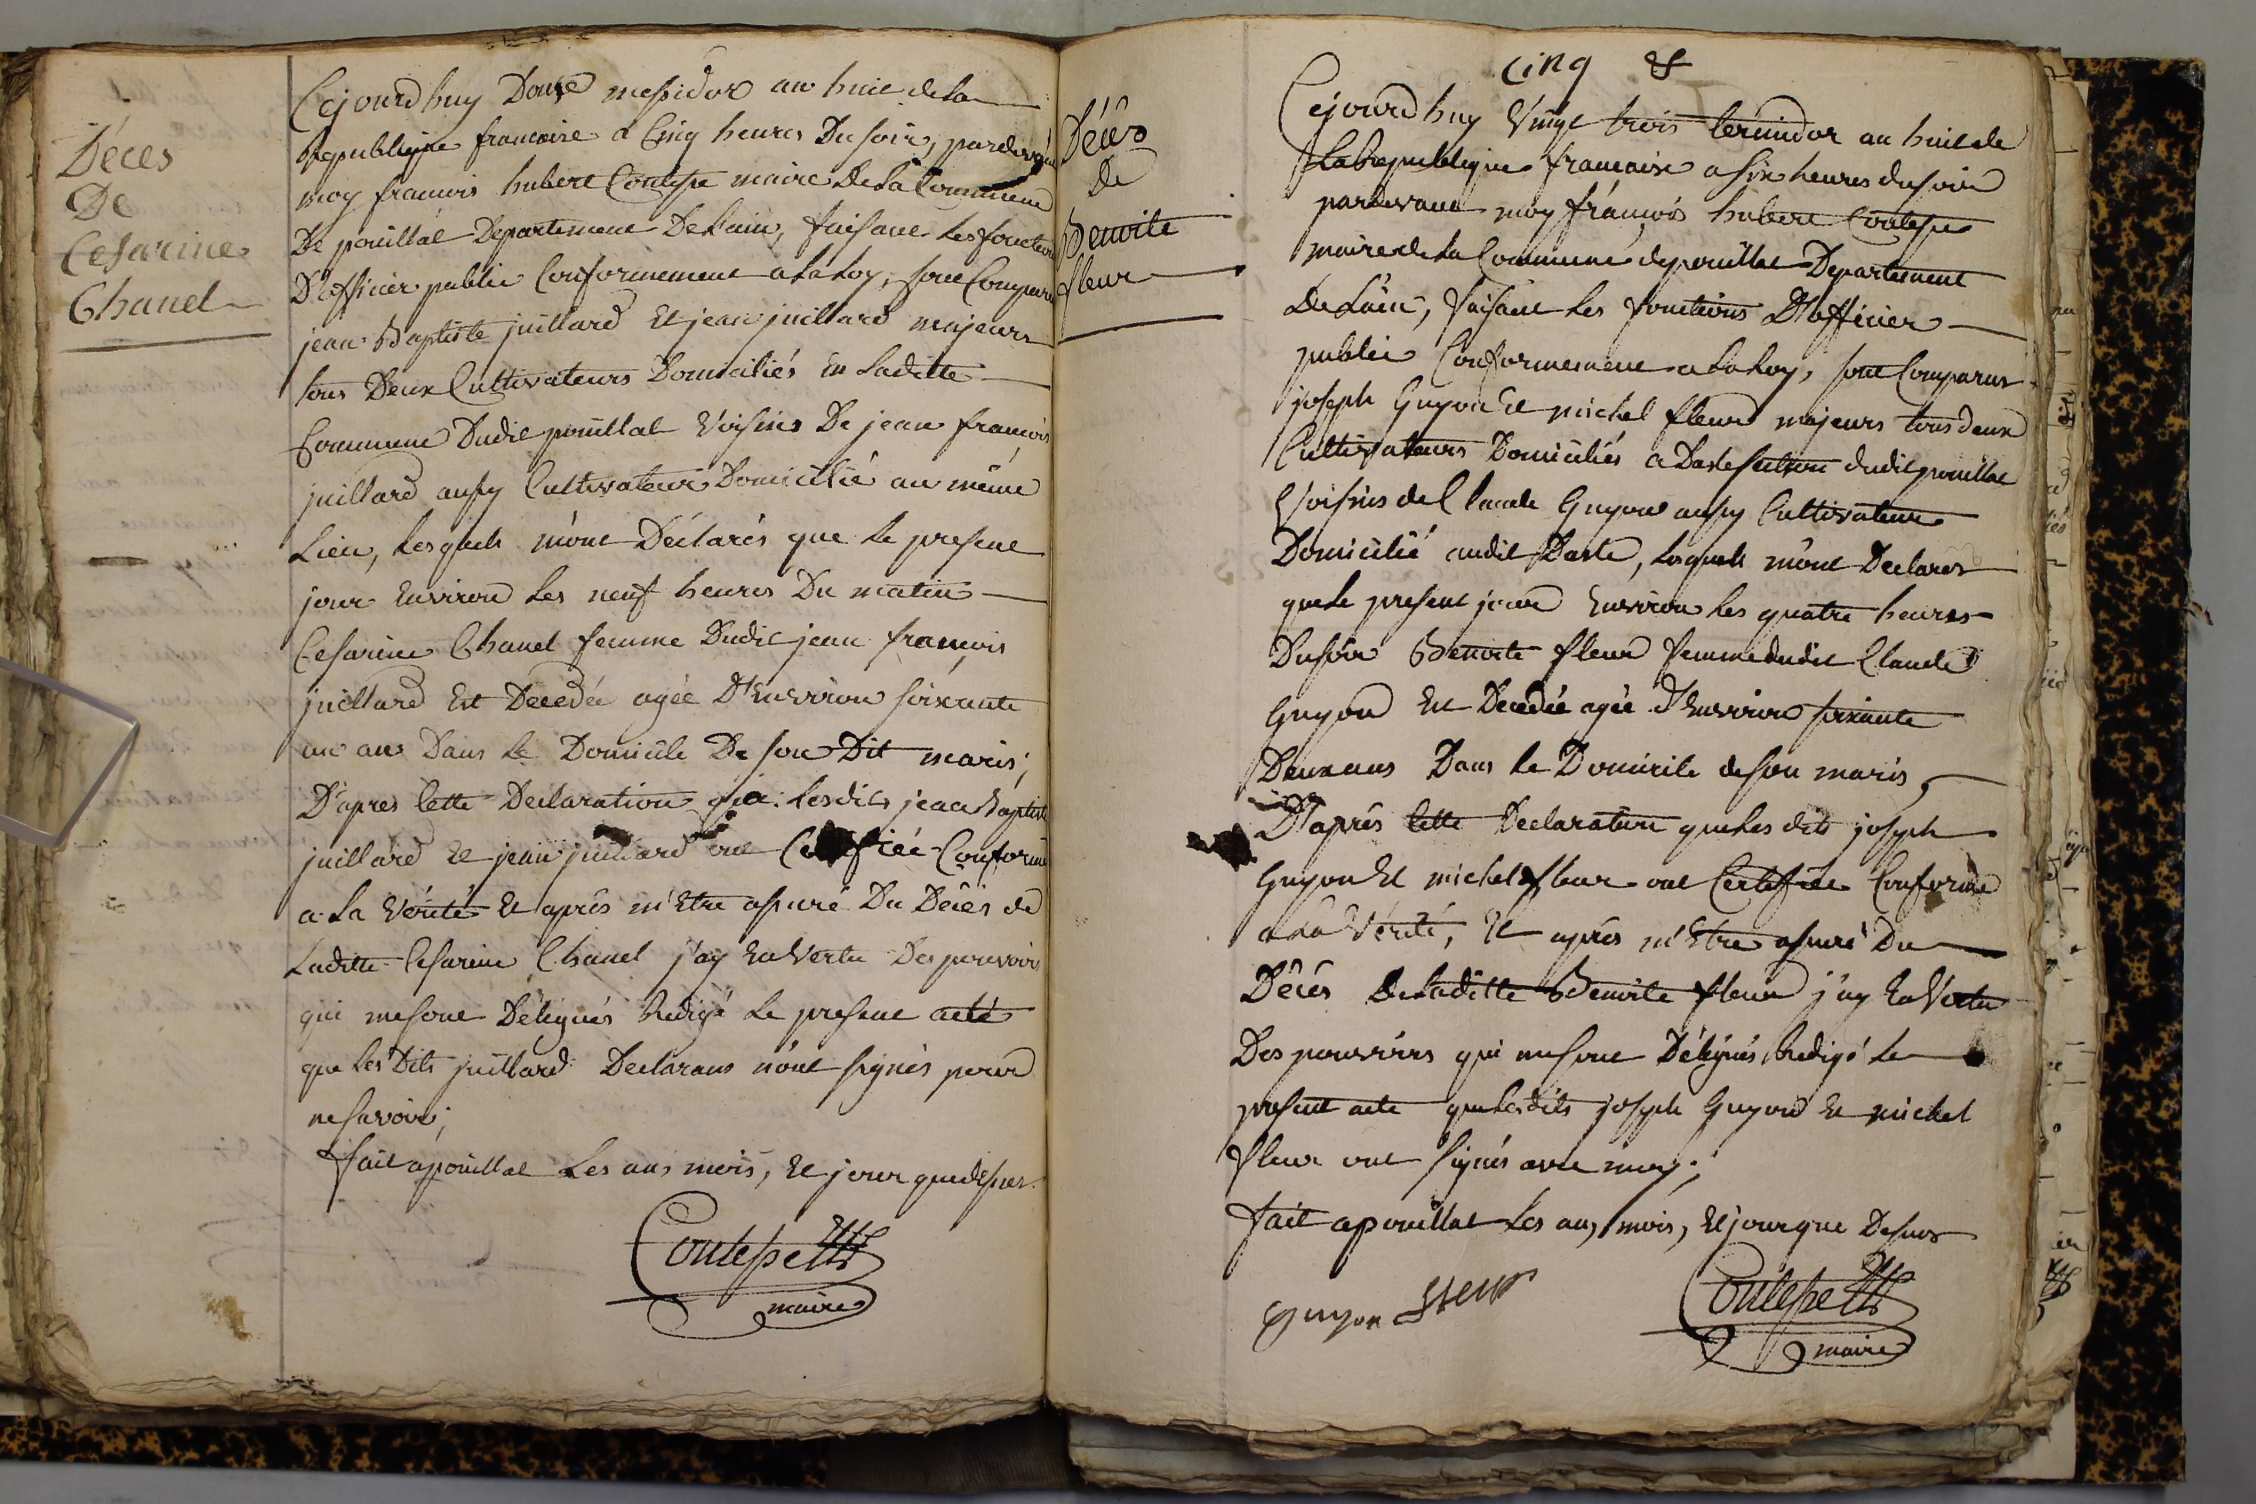 Déces
De
Cesarine
Chanel
Cejourdhuy Douze messidor an huit de la
republique francaise a Cinq heures Du soir, pardevant
moy francois hubert Contesse maire De la Commune
De pouillat Departement De Lain, faisant Les fonctions
D'officier public Conformement a La Loy, sont Comparu
jean Baptiste juillard Et jean juillard majeurs
tous Deux Cultivateurs Domiciliés En Laditte
Commune Dudit pouillat Voisins De jean françois
juillard aussy Cultivateur Domicilié au même
Lieu, Lesquels m'ont Déclarés que Le present
jour Environ Les neuf heures Du matin
Cesarine Chanel femme Dudit jean françois
juillard Est Decedée agée D'Environ soixante
un ans Dans Le Domicile De son Dit maris;
D'apres Cette Declaration que Lesdits jean Baptiste
juillard Et jean juillard ont Certifiée Conforme
a La Vérité Et après m'Etre assuré Du Décès de
Laditte Cesarine Chanel j'ay En Vertu Des pouvoirs
qui me sont Délégués Redigé Le present acte
que Les Dits juillard Declarans n'ont signés pour
ne savoir;
fait a pouillat Les an, mois, Et jour que dessus.
Contesse
maire
cinq
Décès
De
Benoite
fleur
Cejourdhuy Vingt trois termidor an huit de
La Republique francaise a six heures du soir
pardevant moy françois hubert Contesse
maire de La Commune de pouillat Departement
De Lain, faisant Les fonctions D'officier
public Conformement a La Loy, sont Comparus
joseph Guyon Et michel fleur majeurs tous deux
Cultivateurs Domiciliés a dudit pouillat
Voisins de Claude Guyon aussy Cultivateur
Domicilié audit Lesquels m'ont Declarés
que Le present jour Environ Les quatre heures
Du soir Benoite fleur femme dudit Claude
Guyon Est Decedée agée d'Environ soixante
Deux ans Dans Le Domicile de son maris,
D'après Cette Declaration que Les dits joseph
Guyon Et michel fleur ont Certifiée Conforme
a La Vérité, Et après m'Etre assuré Du
Décès De Laditte Benoite fleur j'ay En Vertu
Des pouvoirs qui me sont Délégués Redigé Le
present acte que Lesdits joseph Guyon Et michel
fleur ont signés avec moy;
fait a pouillat Les an, mois, Et jour que Dessus
Guyon fleur Contesse
maire